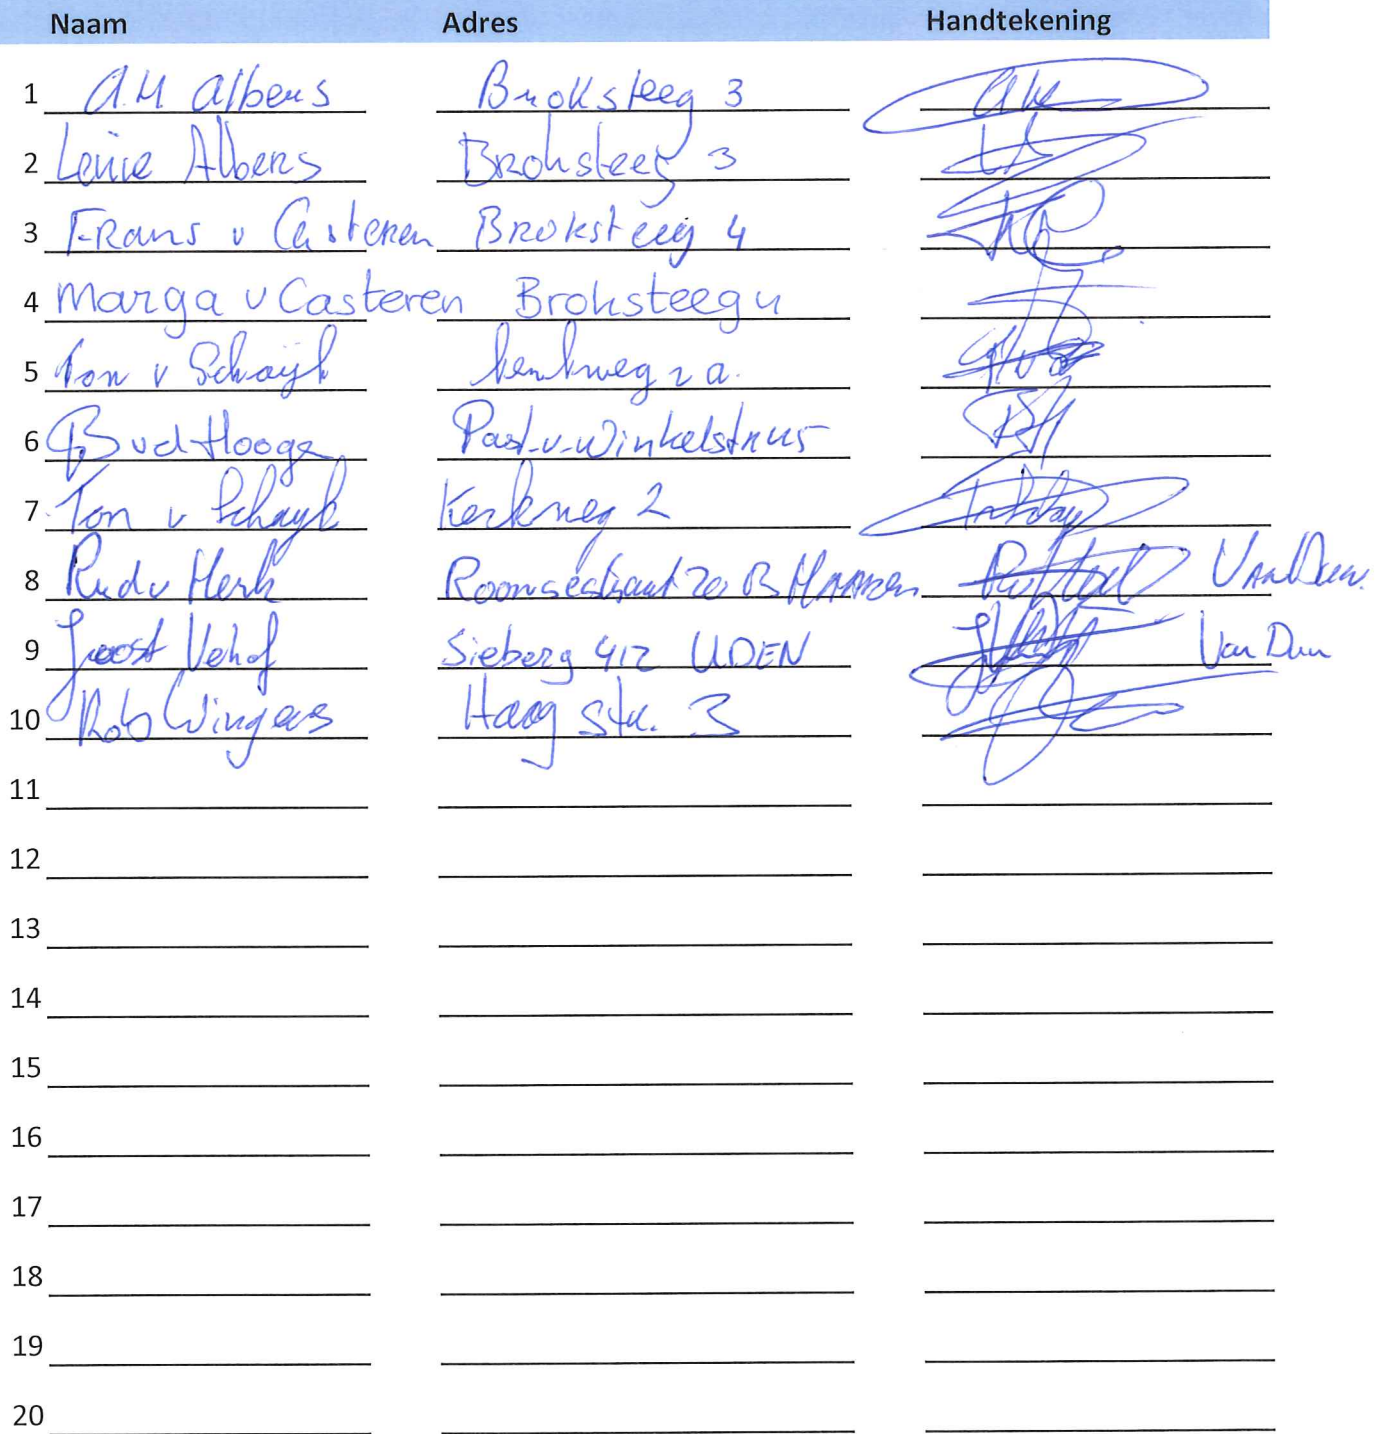 Naam Adres Handtekening
1 A.M Albers Broksteeg 3
2 Albers Broksteeg 3
3 Frans v Casteren Broksteeg 4
4 Marga v Casteren Broksteeg 4
5 Ton v Schayk Kerkweg 2a.
6 B vd Hooge Past. v. Winkelstr
7 Ton v Schayk Kerkweg 2
8 Rud v Herk B
9 Joost Vehof Sieberg 412 UDEN Van Dun
10 Rob Wingens Haag str. 3
11
12
13
14
15
16
17
18
19
20